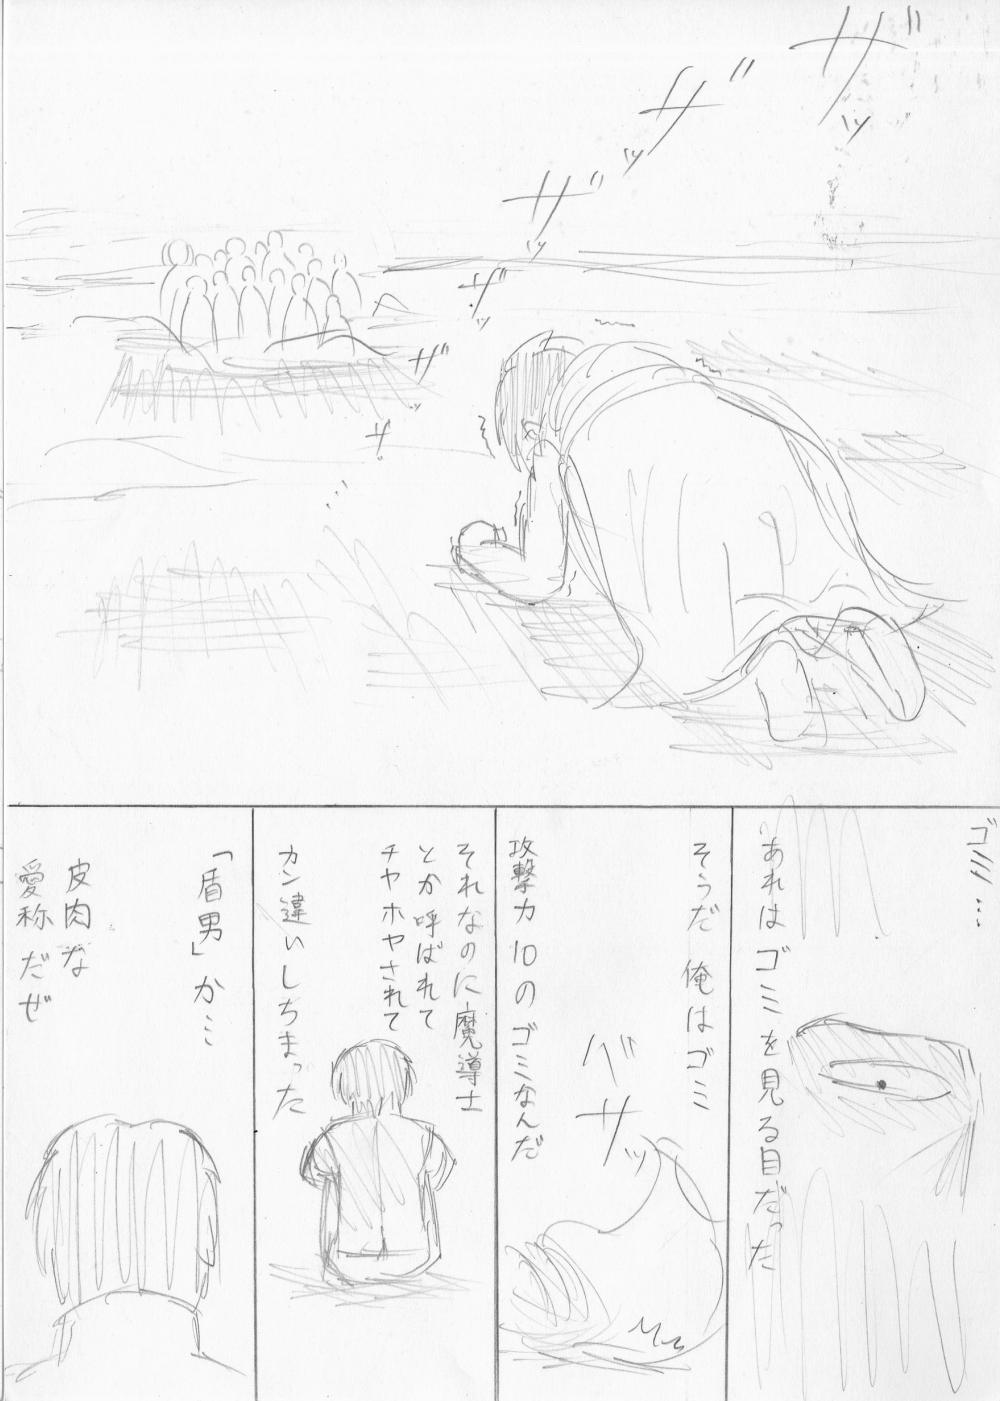 ザッ
ザッ
ザッ
ザッ
ザッ
サ。
…
ゴミ…
あれはゴミを見る目だった
そうだ 俺はゴミ
攻撃力10のゴミなんだ
バサッ
それなのに魔導士
とか呼ばれて
チヤホヤされて
カン違いしちまった
「盾男」か…
皮肉な
愛称だぜ